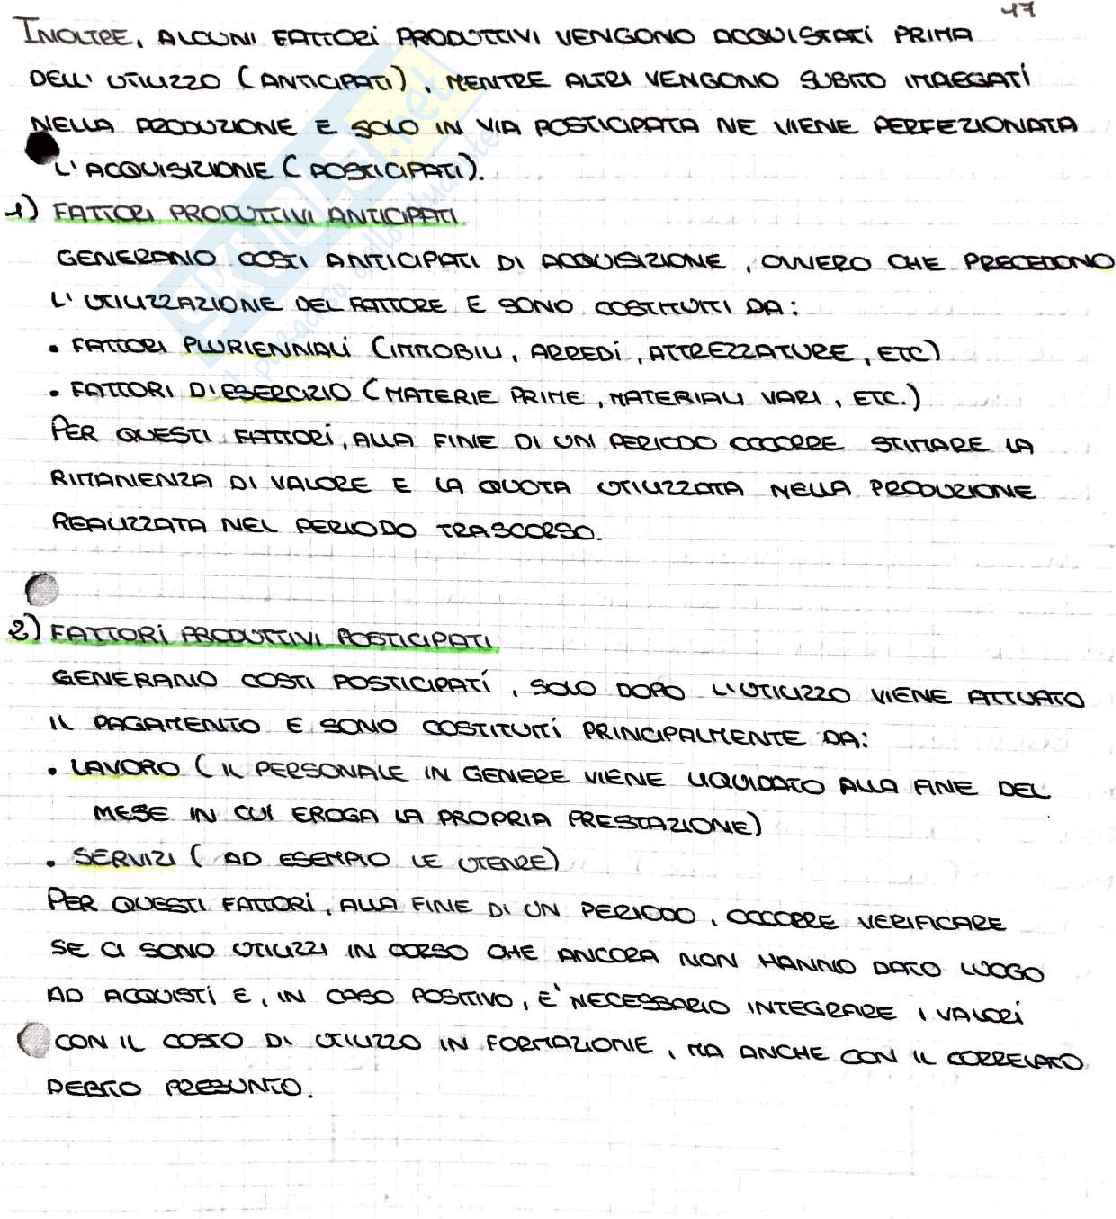 47
INOLTRE, ALCUNI FATTORI PRODUTTIVI VENGONO ACQUISTATI PRIMA
DELL' UTILIZZO (ANTICIPATI), MENTRE ALTRI VENGONO SUBITO IMPIEGATI
NELLA PRODUZIONE E SOLO IN VIA POSTICIPATA NE VIENE PERFEZIONATA
L'ACQUISIZIONE (POSTICIPATI).
1) FATTORI PRODUTTIVI ANTICIPATI
GENERANO COSTI ANTICIPATI DI ACQUISIZIONE, OVVERO CHE PRECEDONO
L'UTILIZZAZIONE DEL FATTORE E SONO COSTITUITI DA:
• FATTORI PLURIENNALI (IMMOBILI, ARREDI, ATTREZZATURE, ETC)
• FATTORI D'ESERCIZIO (MATERIE PRIME, MATERIALI VARI, ETC.)
PER QUESTI FATTORI, ALLA FINE DI UN PERIODO OCCORRE STIMARE LA
RIMANENZA DI VALORE E LA QUOTA UTILIZZATA NELLA PRODUZIONE
REALIZZATA NEL PERIODO TRASCORSO.
2) FATTORI PRODUTTIVI POSTICIPATI
GENERANO COSTI POSTICIPATI, SOLO DOPO L'UTILIZZO VIENE ATTUATO
IL PAGAMENTO E SONO COSTITUITI PRINCIPALMENTE DA:
• LAVORO (IL PERSONALE IN GENERE VIENE LIQUIDATO ALLA FINE DEL
MESE IN CUI EROGA LA PROPRIA PRESTAZIONE)
• SERVIZI (AD ESEMPIO LE UTENZE)
PER QUESTI FATTORI, ALLA FINE DI UN PERIODO, OCCORRE VERIFICARE
SE CI SONO UTILIZZI IN CORSO CHE ANCORA NON HANNO DATO LUOGO
AD ACQUISTI E, IN CASO POSITIVO, E' NECESSARIO INTEGRARE I VALORI
CON IL COSTO DI UTILIZZO IN FORMAZIONE, MA ANCHE CON IL CORRELATO
DEBITO PRESUNTO.